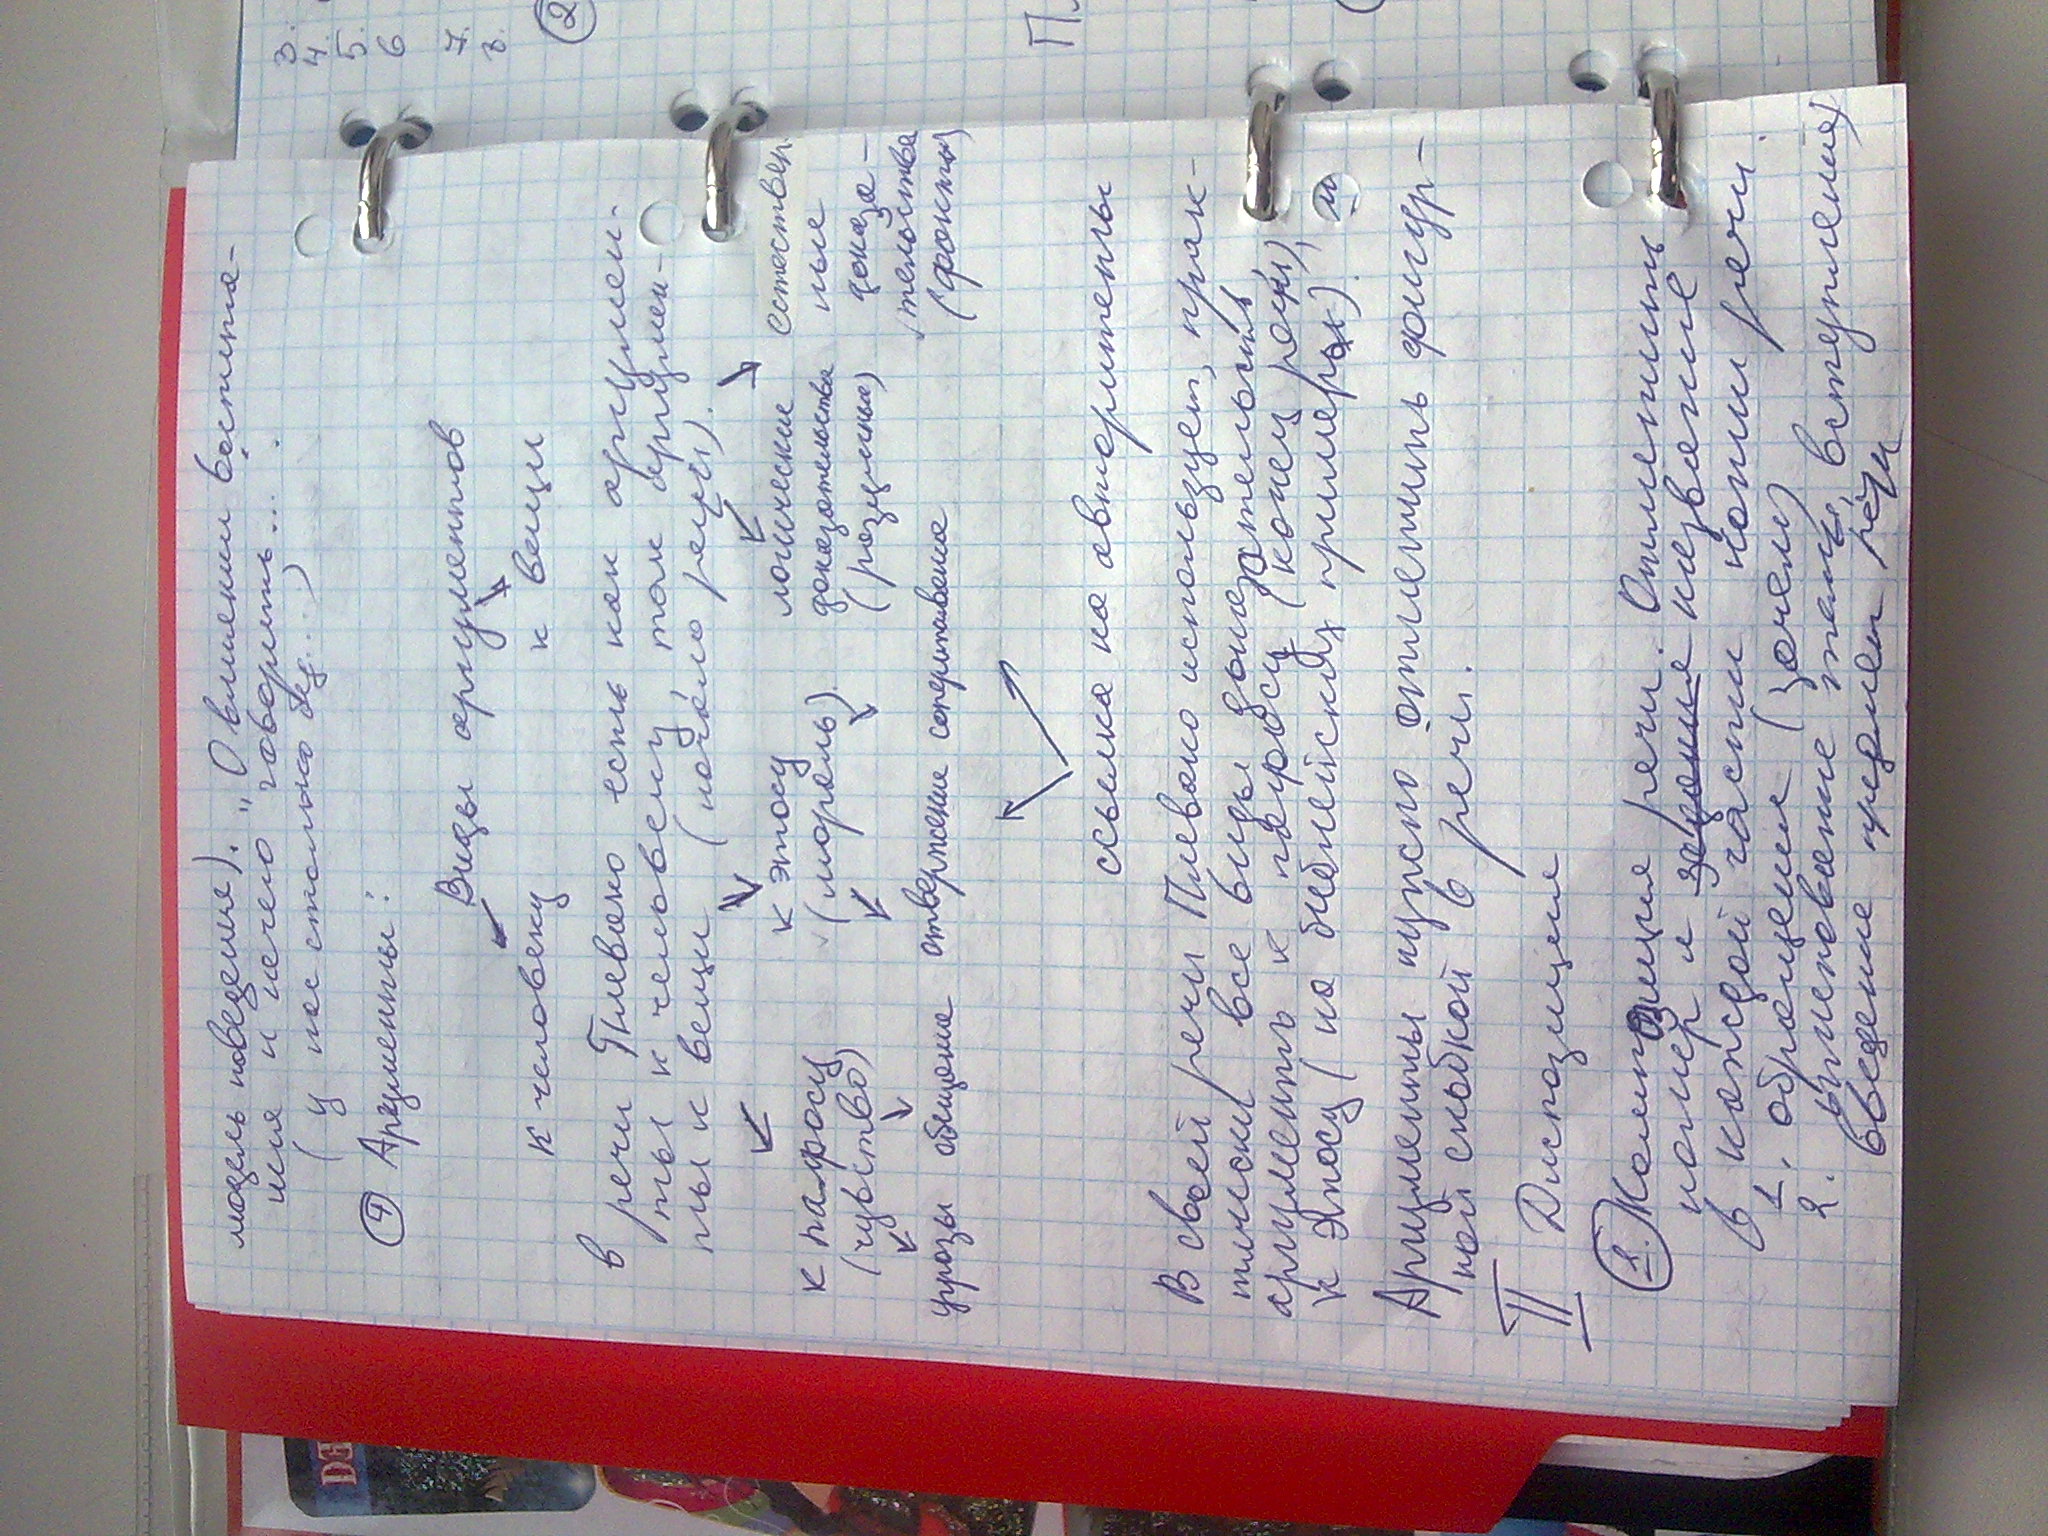 модель поведения). "О влиянии воспита-
ния и нечего говорить....
(у нас столько бед...)
④ Аргументы:
Виды аргументов
к человеку к вещи
в речи Плевако есть как аргумен-
ты к человеку так аргумен-
ты к вещи (начало речи).
к пафосу (чувство)
к этосу (мораль).
логические доказательства (разумные)
естествен
ные
доказа-
тельства
(факты)
угрозы обещание отвержение сопереживание
ссылка на авторитеты
В своей речи Плевако использует, прак-
тически все виды доказательств
аргументы к пафосу (конец речи), и
к этосу (на библейских примерах).
Аргументы нужно отметить фигур-
ной скобкой в речи.
II Диспозиция
①. Композиция речи. Отметить
номер и название
в каждой части нашей речи.
1. обращение (зачем)
2. именование темы, вступление,
введение предмет речи
3.
4.
5.
6
7.
8.
②